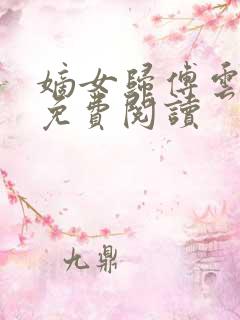 嫡女歸傅雲
免費閱讀
九鼎